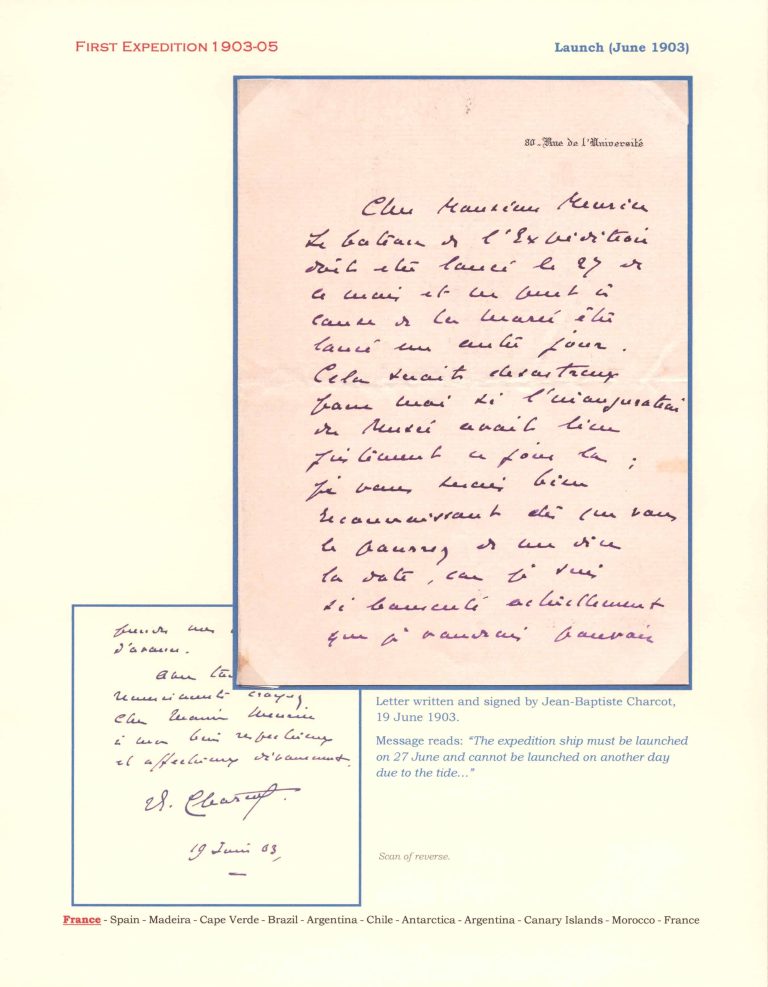 FIRST EXPEDITION 1903-05
Launch (June 1903)
80 - Rue de l'Université
Cher Monsieur
Le bateau de l'Expédition
doit etre lancé le 27 de
ce mois et ne peut à
cause de la marée être
lancé un autre jour.
Cela serait desastreux
pour moi si l'inauguration
du Musée avait lieu
justement ce jour la ;
je vous serais bien
reconnaissant dès que vous
le pourrez de me dire
la date, car je suis
si bousculé actuellement
que je voudrais pouvoir
prendre mes
d'avance.
Avec
remerciements croyez
Cher
à mon bien respectueux
et affectueux dévouement.
J. Charcot.
19 Juin 03,
Letter written and signed by Jean-Baptiste Charcot,
19 June 1903.
Message reads: “The expedition ship must be launched
on 27 June and cannot be launched on another day
due to the tide…”
Scan of reverse.
France - Spain - Madeira - Cape Verde - Brazil - Argentina - Chile - Antarctica - Argentina - Canary Islands - Morocco - France